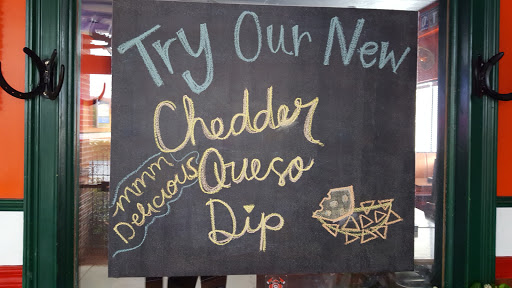 Try Our New
Chedder
Queso
Dip
mmm
Delicious